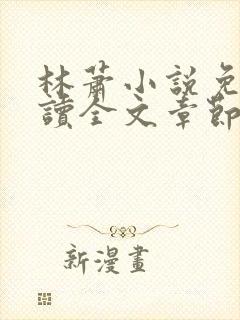 林蕭小說免
讀全文章節
新漫畫